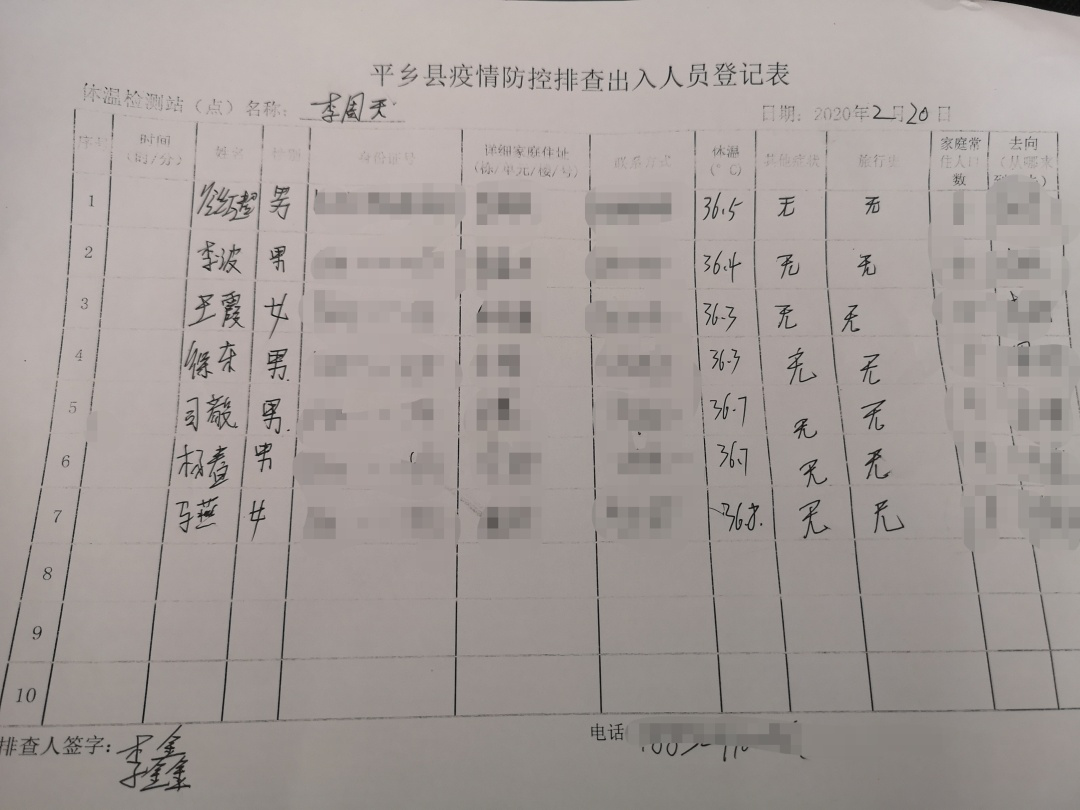 平乡县疫情防控排查出入人员登记表
体温检测站（点）名称：李周天 日期：2020年2月20日
序号 时间（时/分） 姓名 性别 身份证号 详细家庭住址（栋/单元/楼/号） 联系方式 体温（°C） 其他症状 旅行史 家庭常住人口数 去向
1 男 36.5 无 无
2 李波 男 36.4 无 无
3 王霞 女 36.3 无 无
4 徐东 男 36.3 无 无
5 司毅 男 36.7 无 无
6 杨春 男 36.7 无 无
7 女 36.8 无 无
8
9
10
排查人签字：李鑫鑫 电话